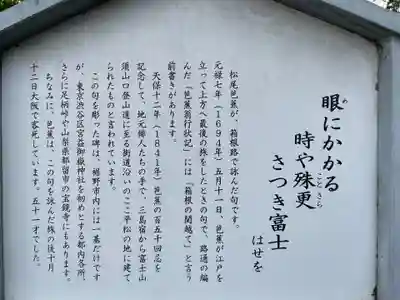 眼にかかる
時や殊更
さつき富士
はせを
松尾芭蕉が、箱根路で詠んだ句です。
元禄七年(1694年)五月十一日、芭蕉が江戸を
立って上方へ最後の旅をしたときの句で、路通の編
んだ「芭蕉翁行状記」には「箱根の関越て」と言う
前書きがあります。
天保十二年(1841年)芭蕉の百五十回忌を
記念して、地元俳人たちの手で、三島宿から富士山
須山口登山道に至る街道沿いのここ平松の地に建て
られたものと言われています。
この句を彫った碑は、裾野市内には一基だけです
が、東京渋谷区宮益御嶽神社を初めとする都内各所、
さらに足柄峠や山梨県都留市の宝鏡寺にもあります。
ちなみに、芭蕉は、この句を詠んだ旅の後十月
十二日大阪で客死しています。五十一才でした。